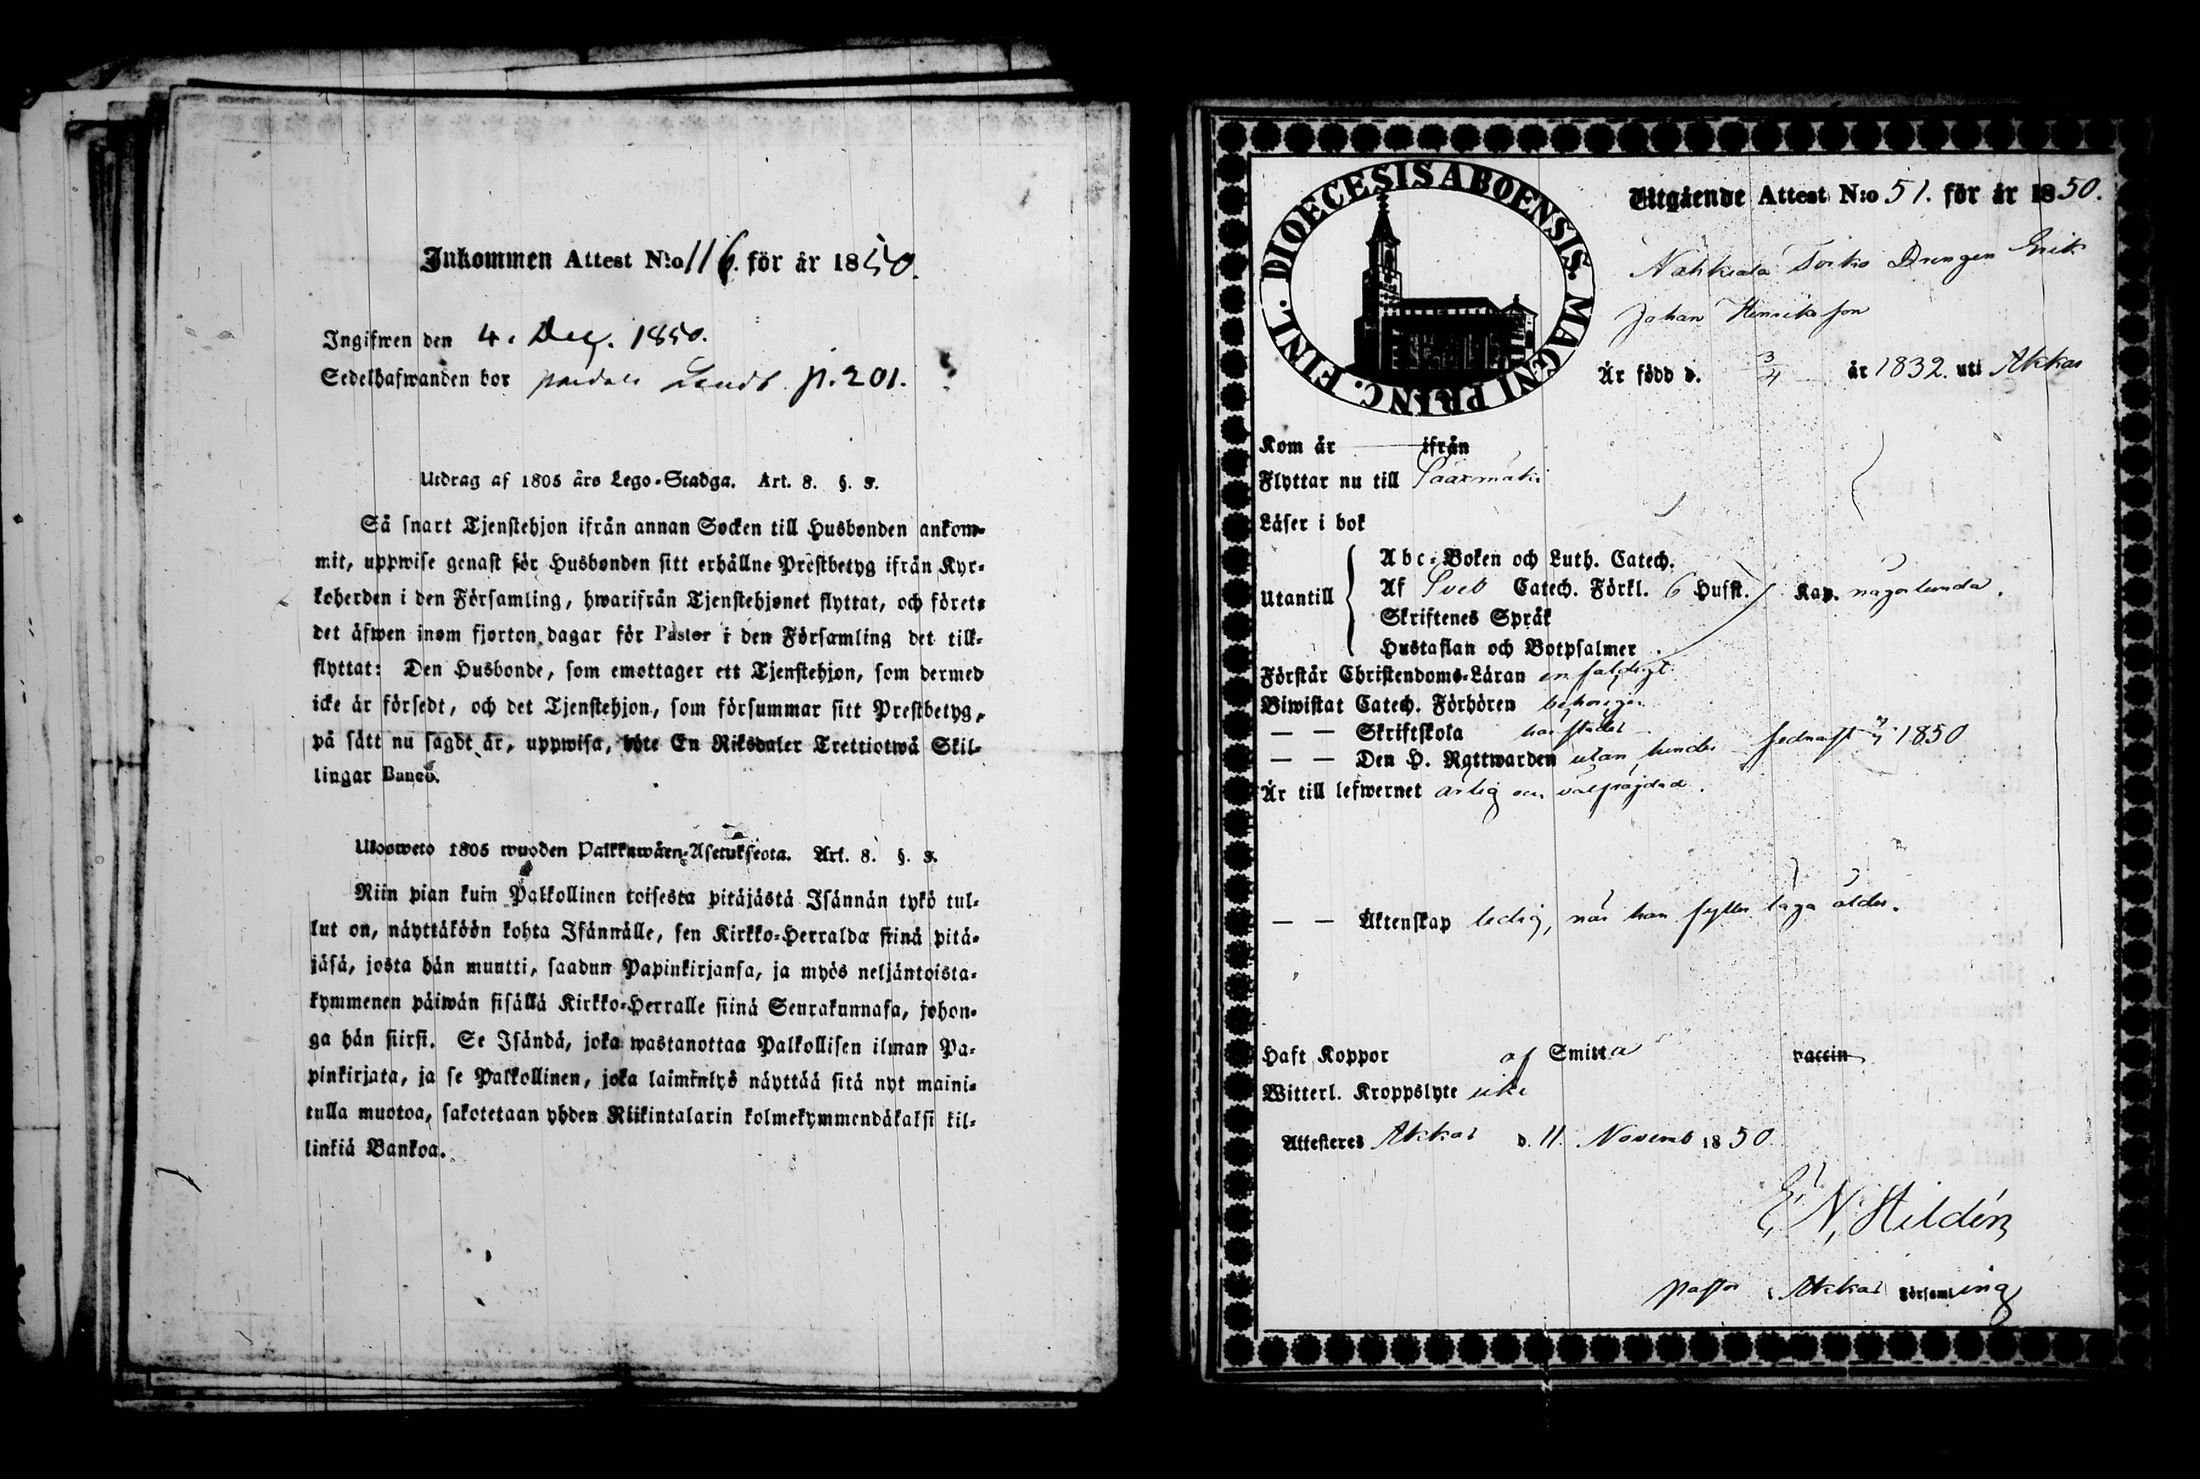 Inkommen Attest N:o 116. för år 1850.
Ingifwen den 4. Dec. 1850.
Sedelhafwanden bor p. 201.
Utdrag af 1805 års Lego-Stadga. Art. 8. §. 3.
Så snart Tjenstehjon ifrån annan Socken till Husbonden ankom-
mit, uppwise genast för Husbonden sitt erhållne Prestbetyg ifrån Kyr-
koherden i den Församling, hwarifrån Tjenstehjonet flyttat, och förete
det äfwen inom fjorton dagar för Pastor i den Församling det till-
flyttat: Den Husbonde, som emottager ett Tjenstehjon, som dermed
icke är försedt, och det Tjenstehjon, som försummar sitt Prestbetyg,
på sätt nu sagdt är, uppwisa, böte En Riksdaler Trettiotwå Skil-
lingar Banco.
Ulosweto 1805 wuoden Palkkawäen-Asetuksesta. Art. 8. §. 3.
Niin pian kuin Palkollinen toisesta pitäjästä Isännän tykö tul-
lut on, näyttäköön kohta Isännälle, sen Kirkko-Herralda siinä pitä-
jäsä, josta hän muutti, saadun Papinkirjansa, ja myös neljäntoista-
kymmenen päiwän sisällä Kirkko-Herralle siinä Seurakunnasa, johon-
ga hän siirsi. Se Isändä, joka wastanottaa Palkollisen ilman Pa-
pinkirjata, ja se Palkollinen, joka laiminlyö näyttää sitä nyt maini-
tulla muotoa, sakotetaan yhden Riikintalarin kolmekymmendäkaksi kil-
linkiä Bankoa.
DIOECESIS ABOENSIS. MAGNI PRINC. FINL.
Utgående Attest N:o 51. för år 1850.
Drengen Erik
Johan Henriksson
Är född d. 3/4 år 1832. uti Akkas
Kom år ifrån
Flyttar nu till Sääxmäki
Läser i bok
Utantill
Abc-Boken och Luth. Catech.
Af Sveb Catech. Förkl. 6 Hufst. Kap. någorlunda.
Skriftenes Språk
Hustaflan och Botpsalmer
Förstår Christendoms-Läran enfaldigt
Biwistat Catech. Förhören behörigen
— — Skriftskola
— — Den H. Nattwarden utan hinder sednast 1850
Är till lefwernet ärlig och välfräjdad.
— — Äktenskap ledig, när han fyller laga ålder.
Haft Koppor af Smitta vaccin
Witterl. Kroppslyte icke
Attesteras Akkas d. 11 Novemb 1850
E. N. Hildén
Pastor i Akkas Församling